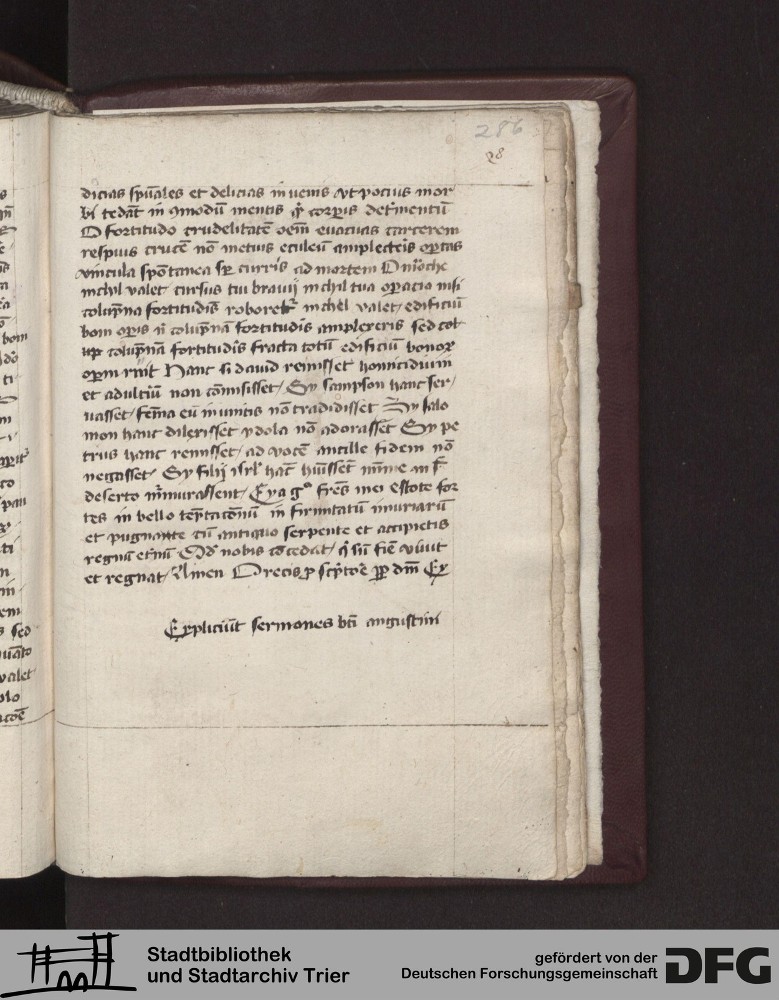 286
28
dicias spūales et delicias inuenis vt pocius mor
tedāt in ꝯmodū mentis corꝑis det̄mentū
O fortitudo crudelitatē oēm euacuas carcerem
respuis crucē nō metuis eculeū amplecteris optas
vincula spōtanea curris ad mortem O
nichil valet cursus tui brauij nichil tua oꝑacio nisi
colūpna fortitudinis roboret᷑ nichil valet edificiū
boni oꝑis nͥ colūpnā fortitudinis amplexeris sed
colūpnā fortitudinis fracta totū edificiū bonoꝝ
oꝑum ruit Hanc si dauid tenuisset homicidium
et adultiū non cōmisisset Sy sampson hanc ser
uasset femīa eū inimicis nō tradidisset Sy salo
mon hanc dilexisset ydola nō adorasset Sy pe
trus hanc tenuisset ad vocē ancille fidem nō
negasset Sy filij isrl̄ hāc hūissēt mīme in
deserto m̄murassent Eya gͦ fr̄es mei estote for
tes in bello tēptacōnū in firmitatū iniuriarū
et pugnante cū antiquo serpente et accipietis
regnū et̄nū nobis cōcedat qͥ sn̄ fīe viuit
et regnat Amen scp̄tore dn̄m
Expliciūt sermones bt̄i augustini
Stadtbibliothek
und Stadtarchiv Trier
gefördert von der
Deutschen Forschungsgemeinschaft
DFG